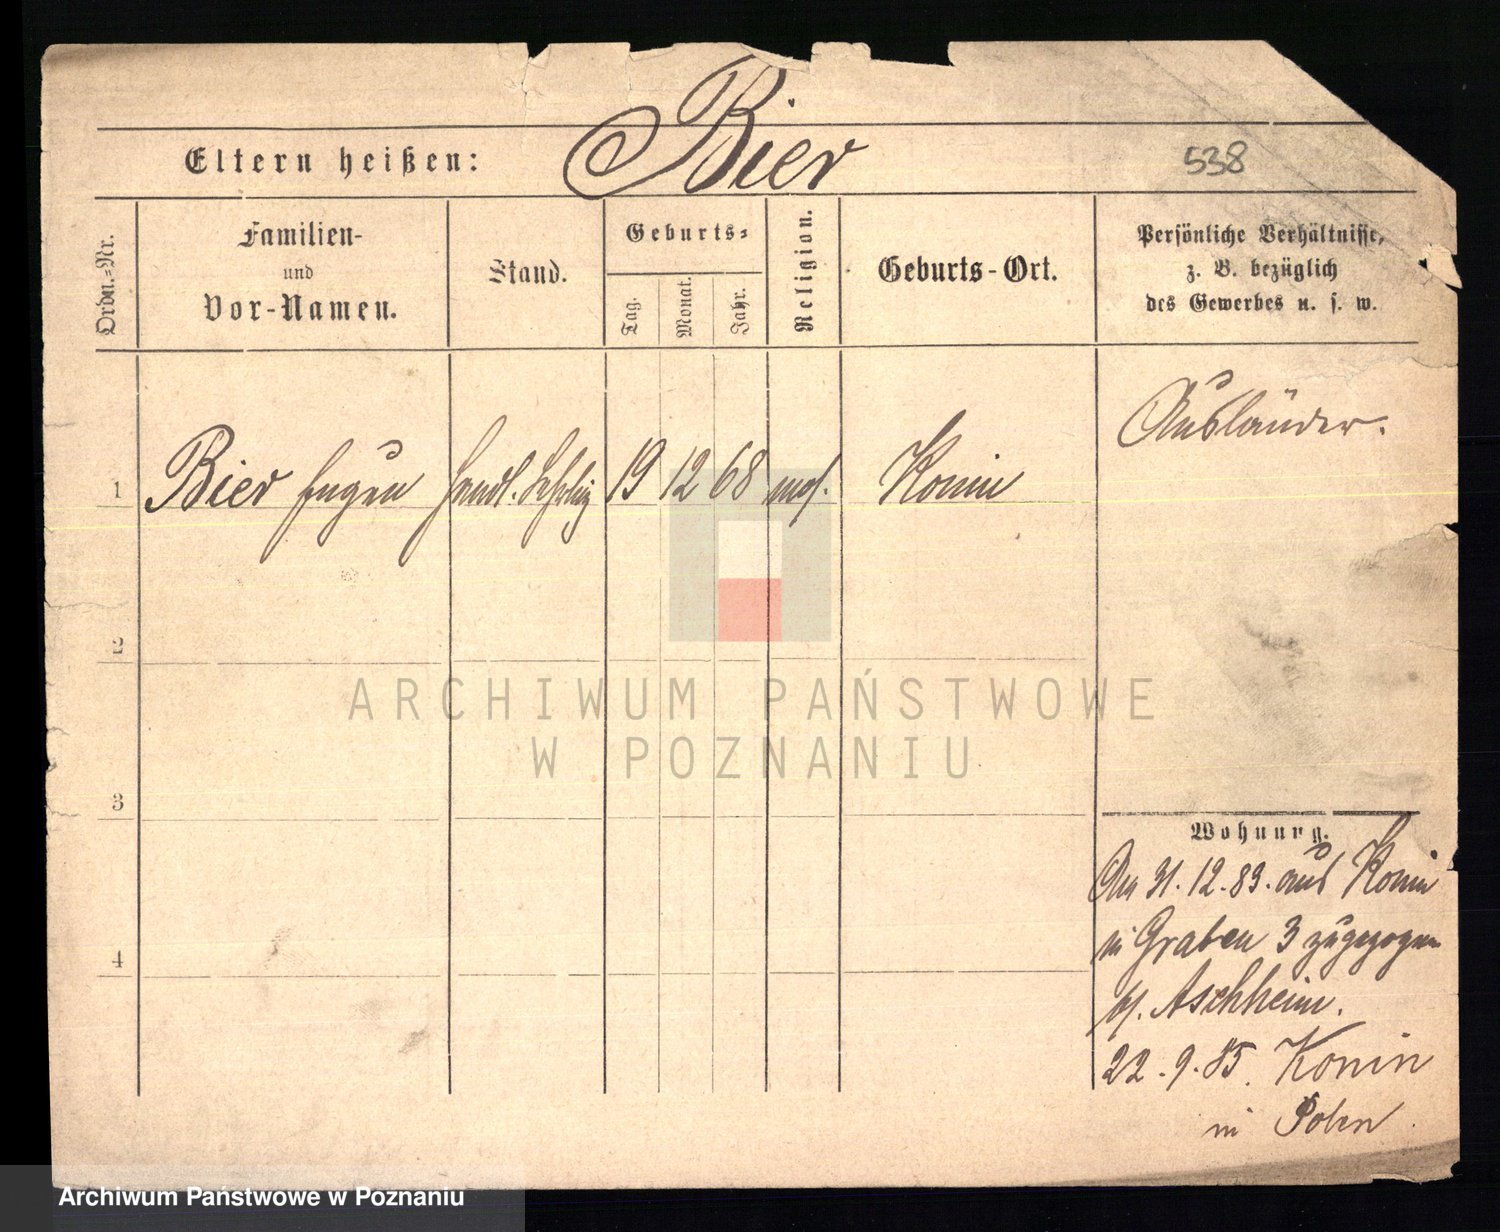 Bier
Eltern heißen:
538
Ordn.=Nr.
Familien-
und
Vor-Namen.
Stand.
Geburts=
Tag.
Monat.
Jahr.
Religion.
Geburts-Ort.
Persönliche Verhältnisse,
z. B. bezüglich
des Gewerbes u. s. w.
Ausländer.
1 Bier Eugen Handl. Lehrling 19 12 68 mos. Konin
2
3
4
Wohnung.
Am 31.12.83. aus Konin
in Graben 3 zugezogen
bei Aschheim.
22.9.85. Konin
in Polen
ARCHIWUM PAŃSTWOWE
W POZNANIU
Archiwum Państwowe w Poznaniu